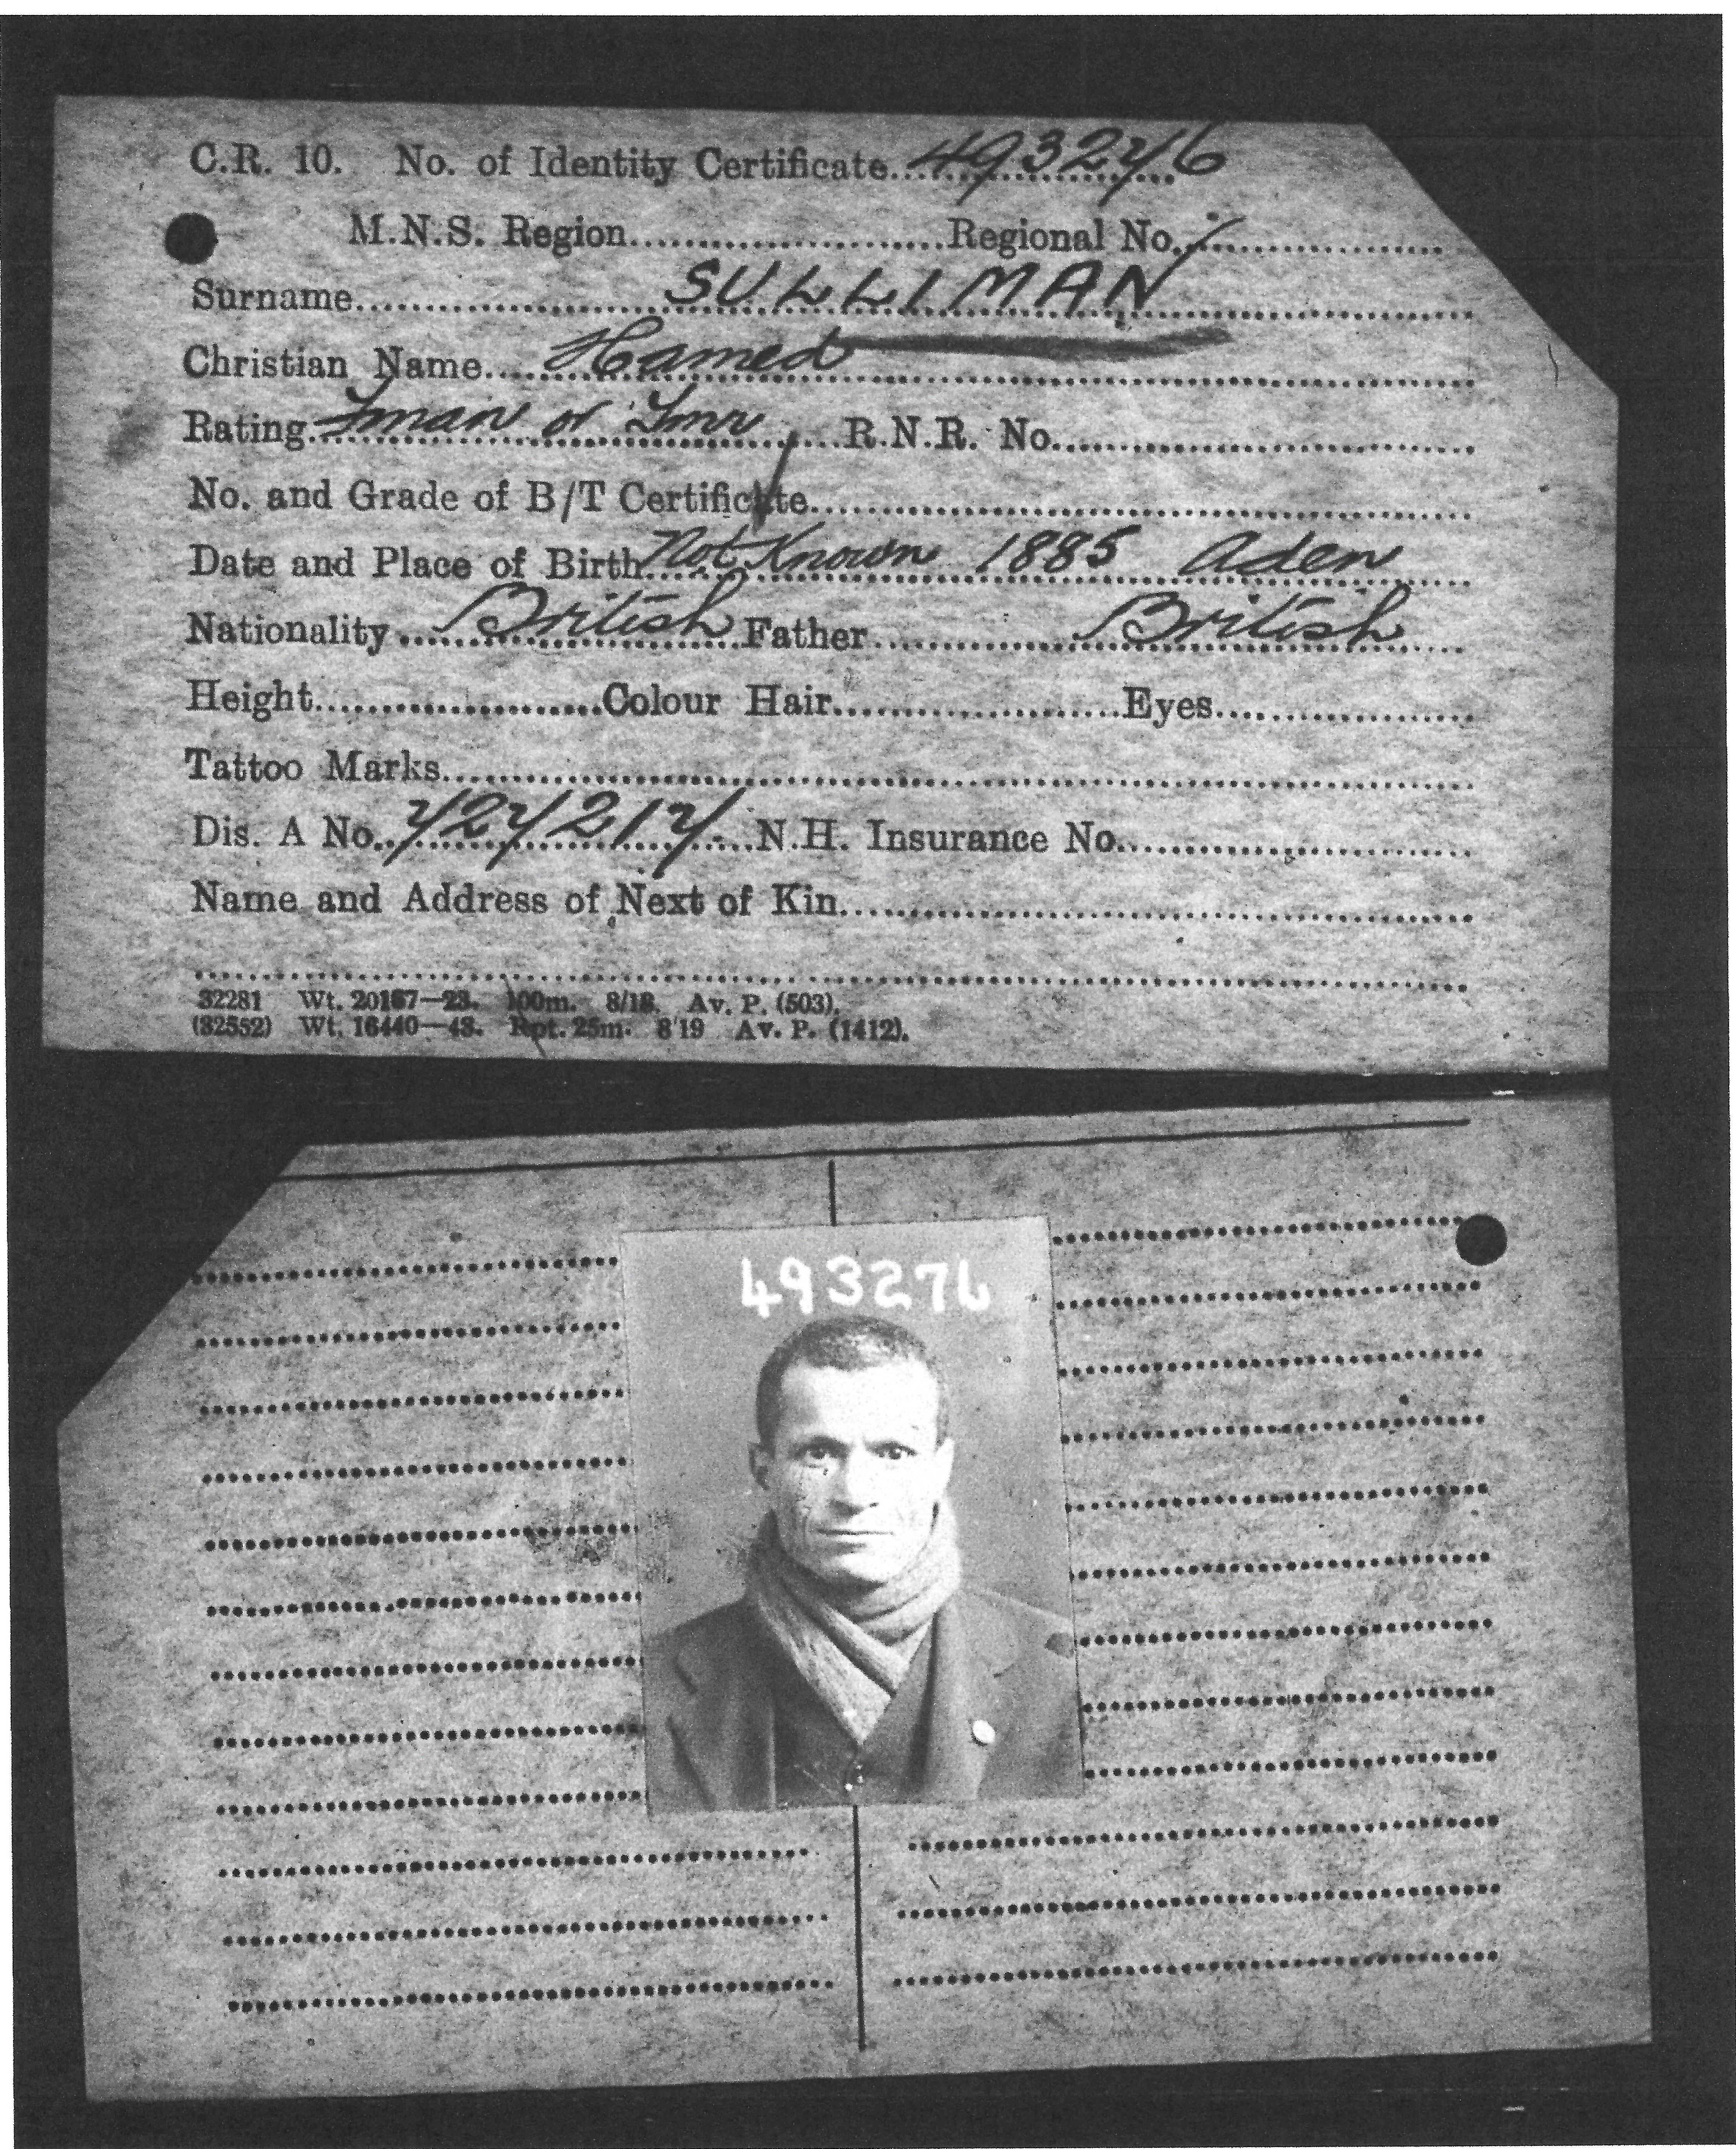 C.R. 10. No. of Identity Certificate 493276
M.N.S. Region Regional No.
Surname SULLIMAN
Christian Name Hamed
Rating Fman or Tmr R.N.R. No.
No. and Grade of B/T Certificate
Date and Place of Birth Not Known 1885 Aden
Nationality British Father British
Height Colour Hair Eyes
Tattoo Marks
Dis. A No. 727217 N.H. Insurance No.
Name and Address of Next of Kin
32281 Wt. 20167—23. 100m. 8/18. Av. P. (503).
(32552) Wt. 16440—43. Rpt. 25m. 8'19 Av. P. (1412).
493276